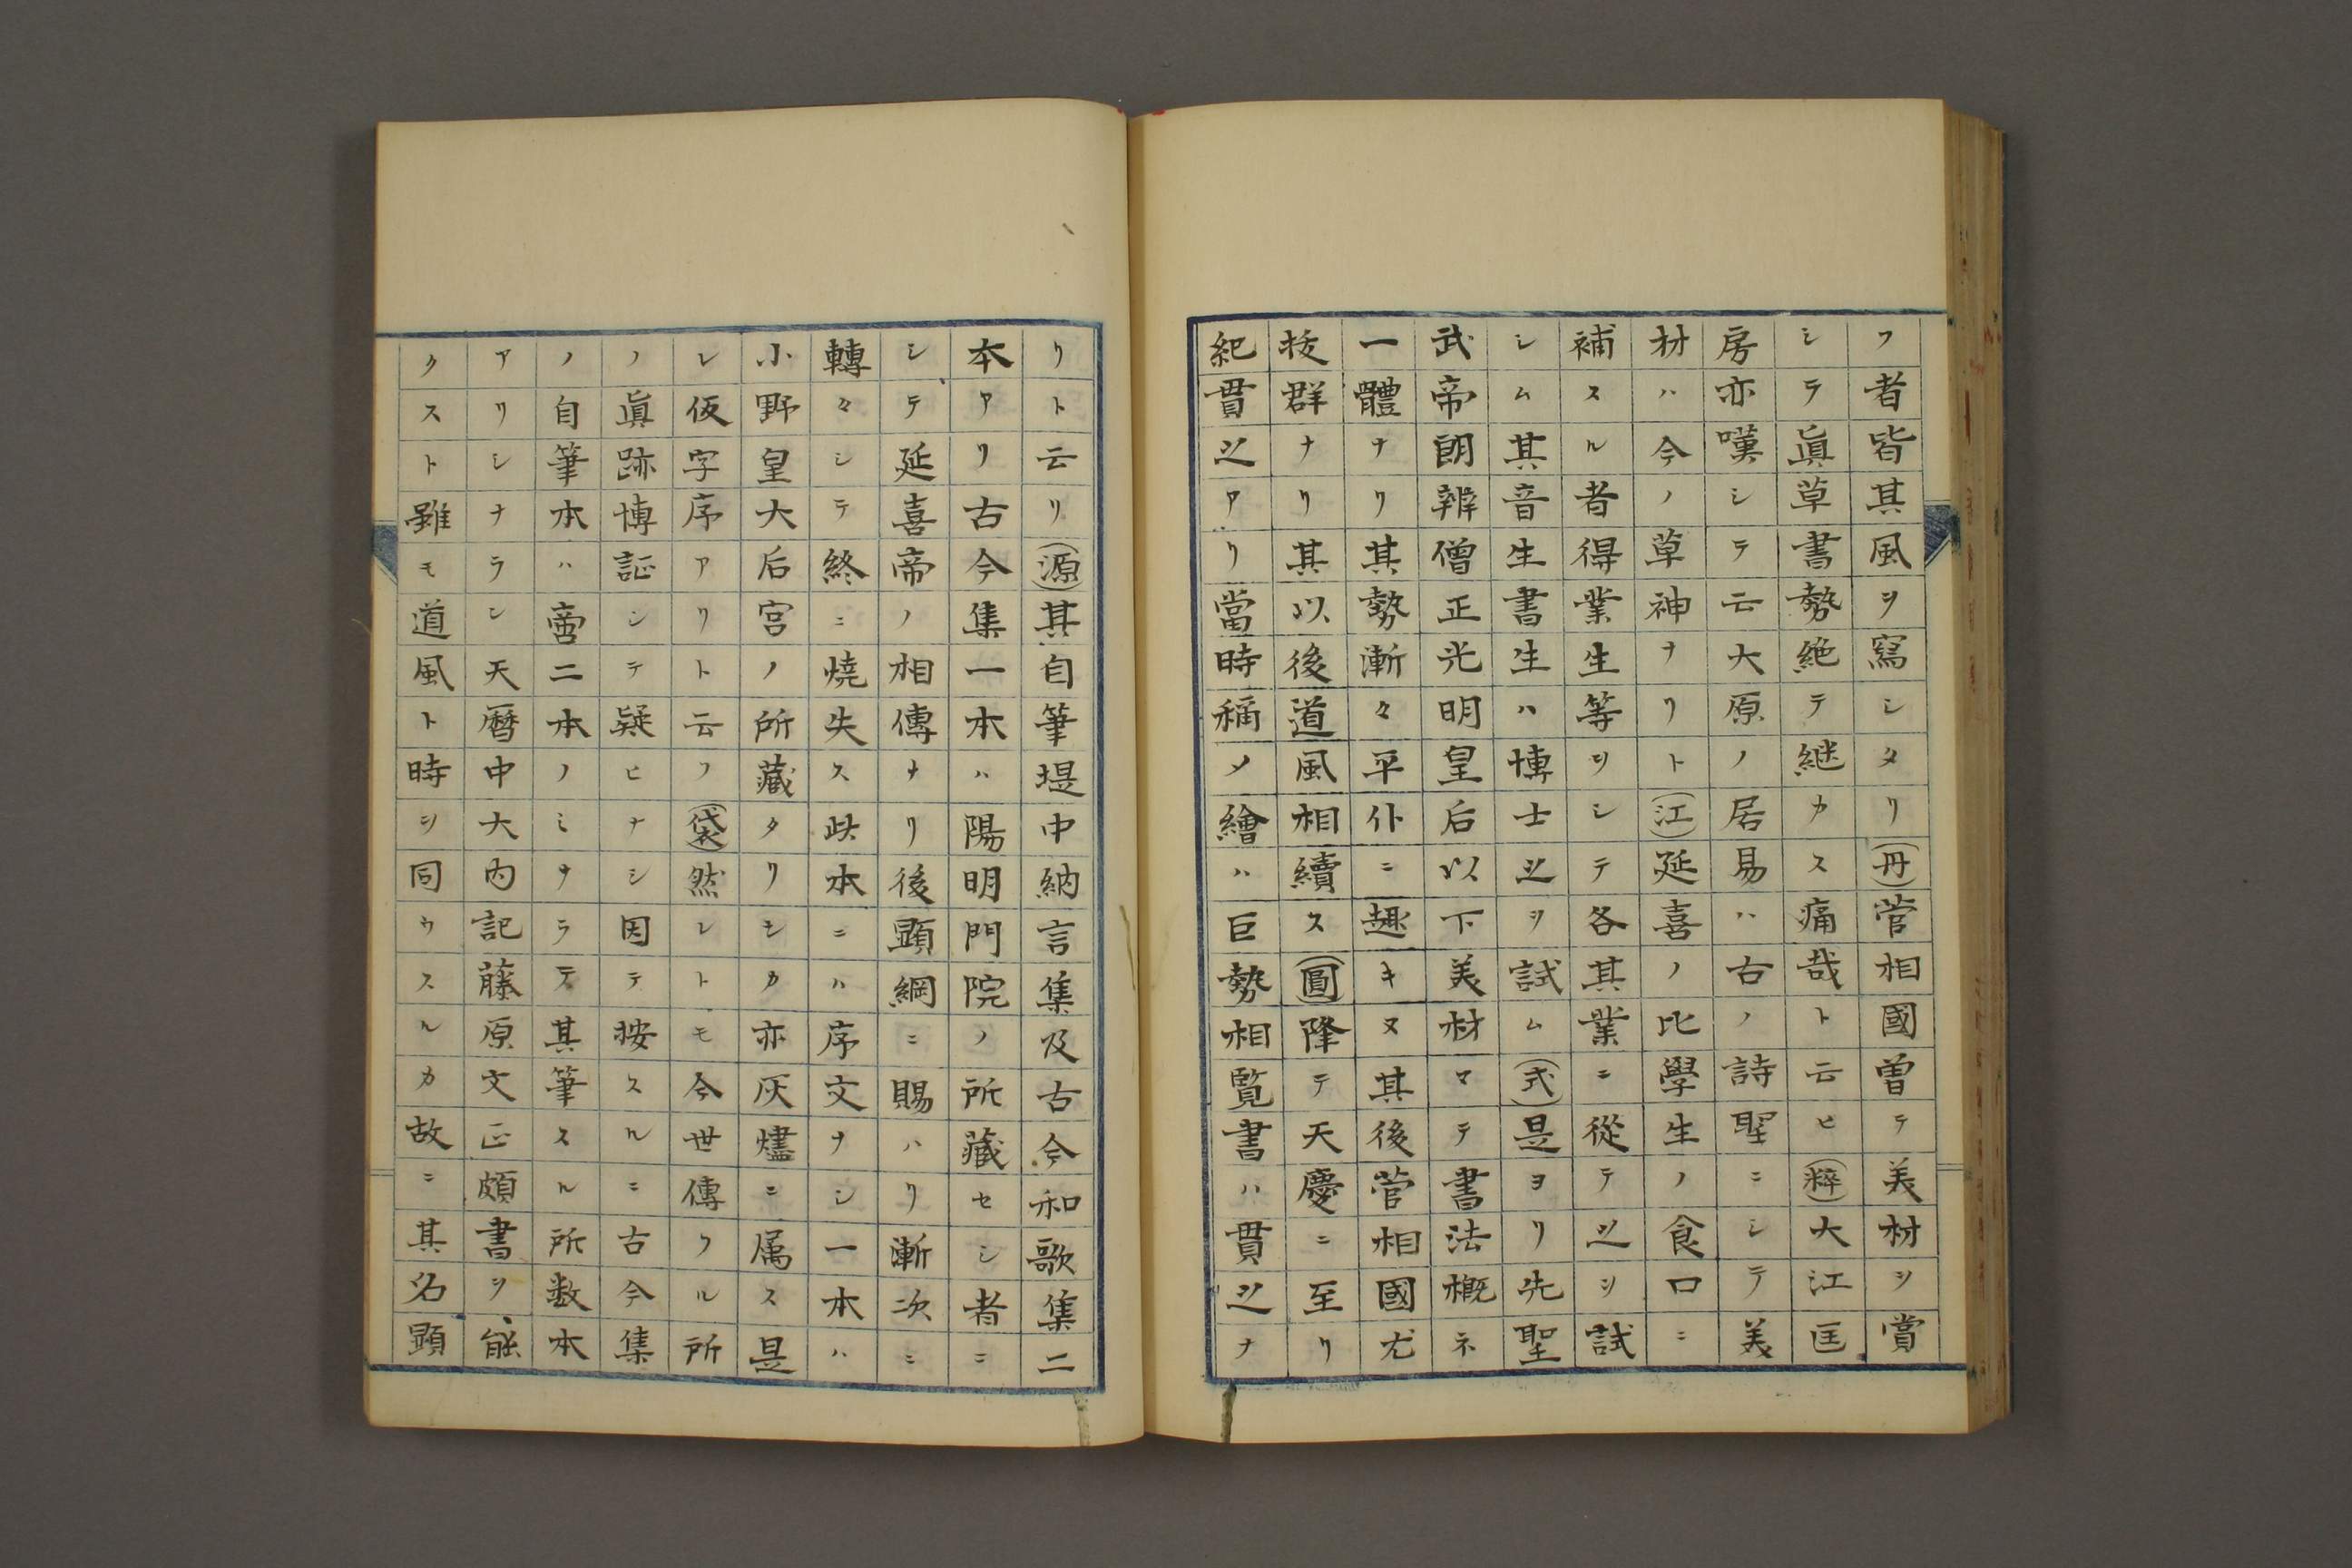 フ者皆其風ヲ寫シタリ(丹)菅相國曽テ美材ヲ賞
シテ眞草書勢絶テ継カス痛哉ト云ヒ(粹)大江匡
房亦嘆シテ云大原ノ居易ハ古ノ詩聖ニシテ美
材ハ今ノ草神ナリト(江)延喜ノ比學生ノ食口ニ
補スル者得業生等ヲシテ各其業ニ從テ之ヲ試
シム其音生書生ハ博士之ヲ試ム(式)是ヨリ先聖
武帝朗辨僧正光明皇后以下美材マテ書法概ネ
一體ナリ其勢漸々平仆ニ趣キヌ其後菅相國尤
抜群ナリ其以後道風相續ス(圓)降テ天慶ニ至リ
紀貫之アリ當時稱メ繪ハ巨勢相覧書ハ貫之ナ
リト云リ(源)其自筆堤中納言集及古今和歌集二
本アリ古今集一本ハ陽明門院ノ所藏セシ者ニ
シテ延喜帝ノ相傳ナリ後顕綱ニ賜ハリ漸次ニ
轉々シテ終ニ燒失ス此本ニハ序文ナシ一本ハ
小野皇大后宮ノ所藏タリシカ亦灰燼ニ属ス是
レ仮字序アリト云フ(袋)然レトモ今世傳フル所
ノ眞跡博証シテ疑ヒナシ因テ按スルニ古今集
ノ自筆本ハ啻二本ノミナラテ其筆スル所数本
アリシナラン天暦中大内記藤原文正頗書ヲ能
クスト雖モ道風ト時ヲ同ウスルカ故ニ其名顕